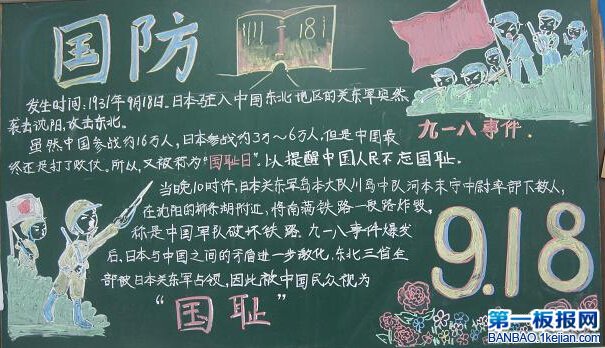 国防
发生时间:1931年9月18日.日本驻入中国东北地区的关东军突然
袭击沈阳,攻击东北。
虽然中国参战约16万人,日本参战约3万~6万人,但是中国最
终还是打了败仗。所以,又被称为“国耻日”.以提醒中国人民不忘国耻.
九一八事件.
当晚10时许,日本关东军岛本大队川岛中队河本末守中尉率部下数人,
在沈阳的柳条湖附近,将南满铁路一段路炸毁,
称是中国军队破坏铁路.九一八事件爆发
后,日本与中国之间的矛盾进一步激化,东北三省全
部被日本关东军占领,因此被中国民众视为
“国耻”
9.18
第一板报网
BANBAO.1kejian.com